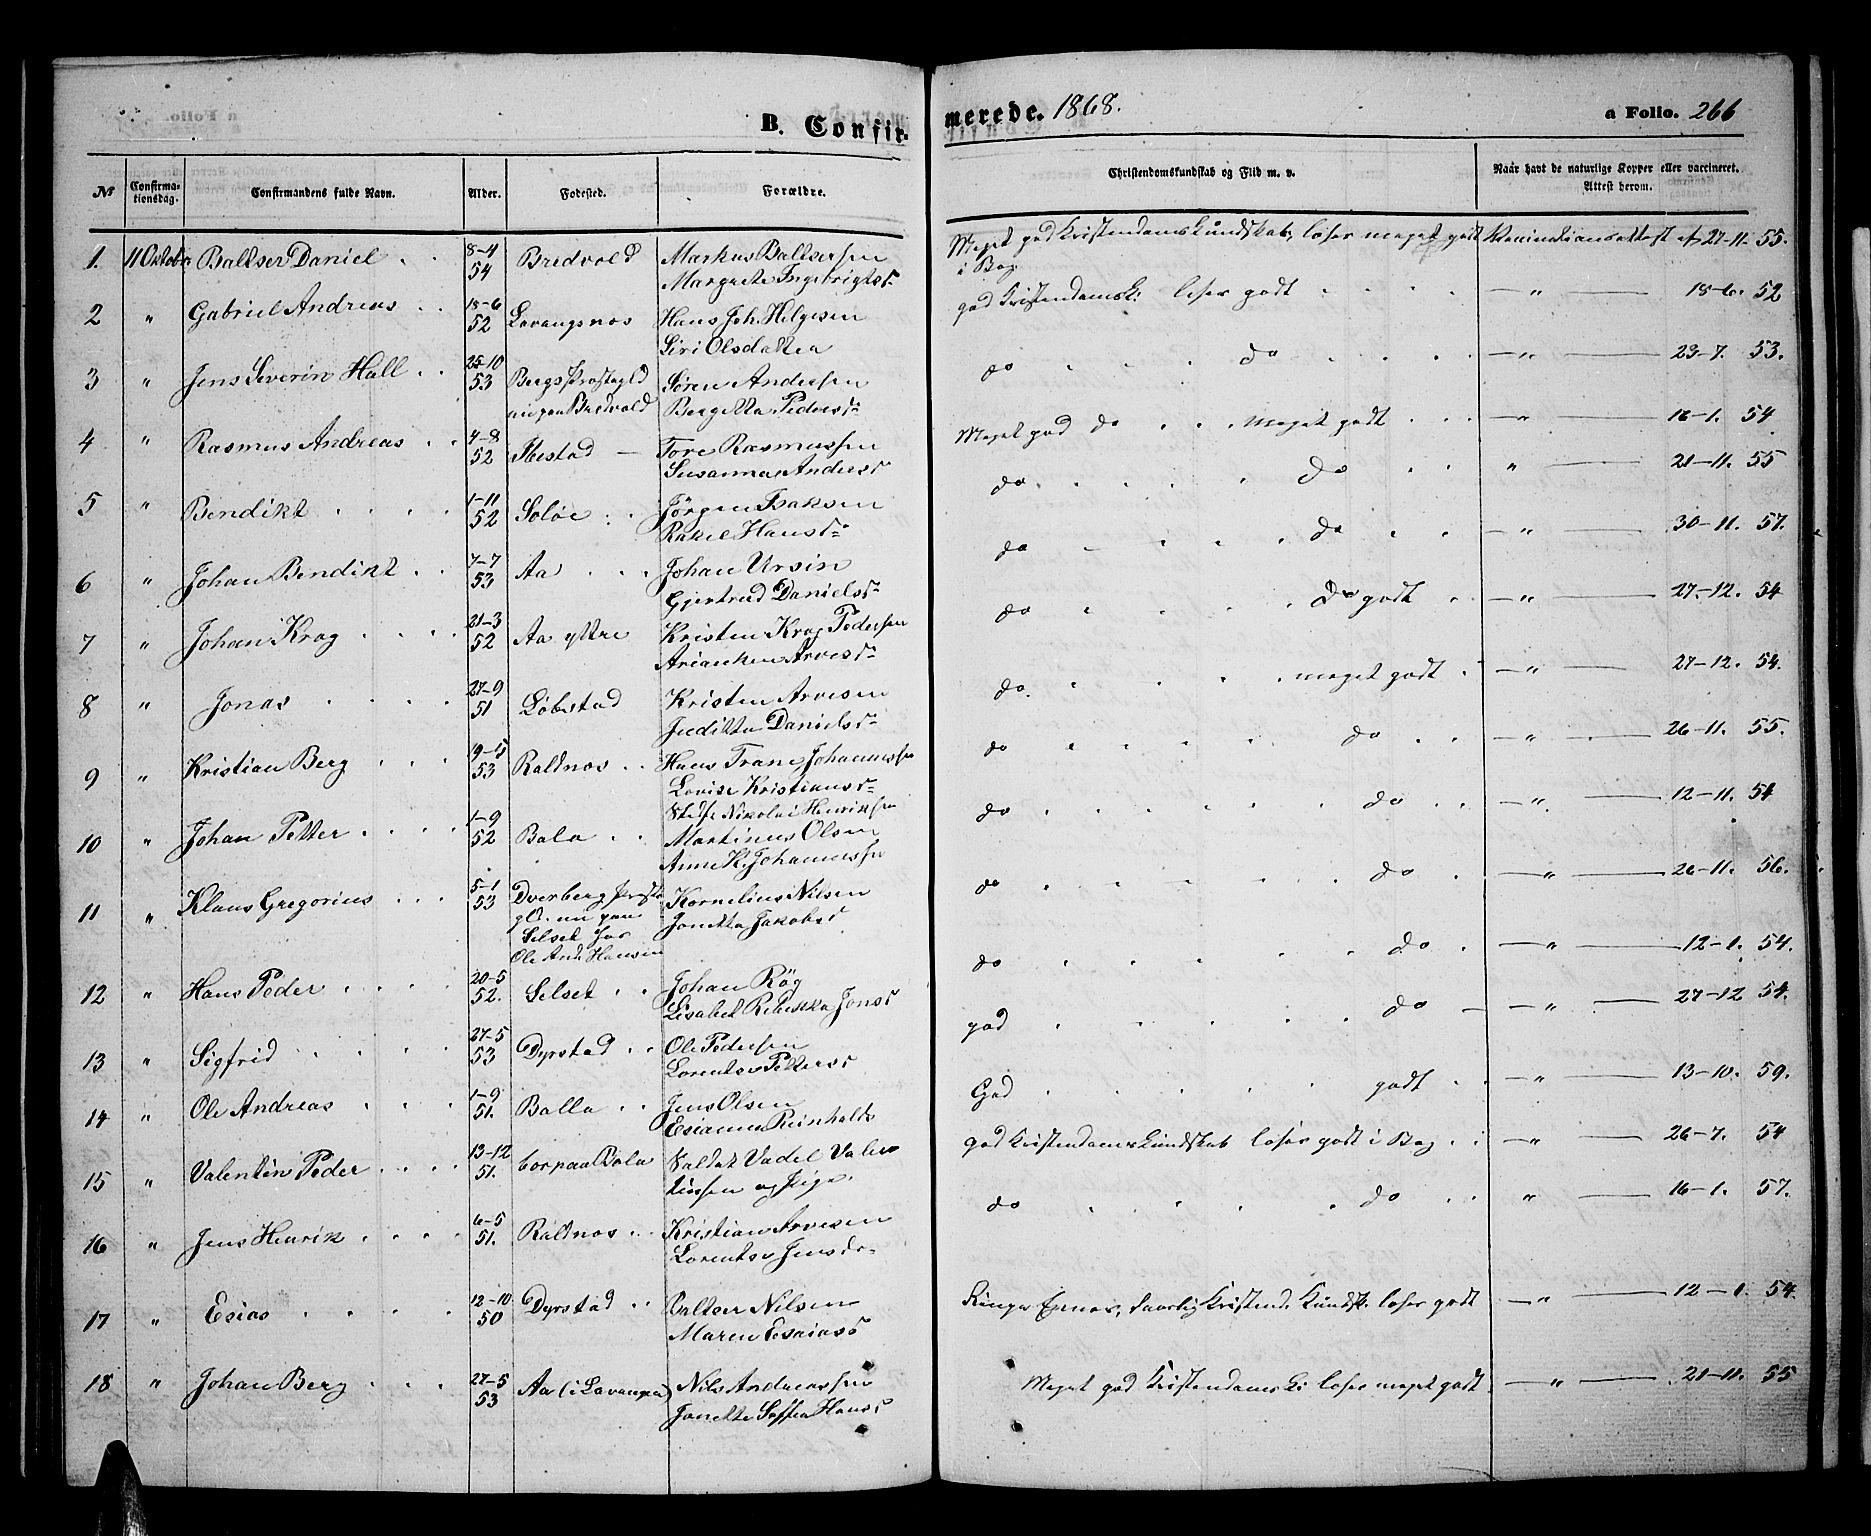 B. Confir-
merede. 1868.
a Folio. 266
№
Confirma-
tionsdag.
Confirmandens fulde Navn.
Alder.
Fødested.
Forældre.
Christendomskundskab og Flid m. v.
Naar havt de naturlige Kopper eller vaccineret.
Attest herom.
1. 11 Oktober Baltser Daniel 8-4 54 Bredvold Markus Baltsersen
Margrete Ingebrigtsd
Meget god Kristendomskundskab, læser meget godt i Bog Vaccinationsattest af 27-11. 55.
2 " Gabriel Andreas 18-6 52 Lavangsnæs Hans Joh. Helgesen
Siri Olsdatter
god Kristendomsk. læser godt — " — 18-6. 52
3 " Jens Severin Hall 25-10 53 Bergs Præstegld nu paa Bredvold Søren Andersen
Bergitta Pedersd
do do — " — 23-7. 53.
4 " Rasmus Andreas 4-8 52 Ibestad — Tore Rasmussen
Susanna Andersd
Meget god do meget godt " — 16-1. 54
5 " Bendikt 1-11 52 Soløe Jørgen Isaksen
Rakel Hansd
do do " — 21-11. 55
6 " Johan Bendikt 7-7 53 Aa Johan Ursin
Gjertrud Danielsd
do do " — 30-11. 57.
7 " Johan Krog 21-3 52 Aa yttre Kristen Krog Pedersen
Arianken Arvesd
do do godt — " — 27-12. 54
8 " Jonas 27-9 51 Løbestad Kristen Arvesen
Juditta Danielsd
do meget godt — " — 27-12. 54.
9 " Kristian Berg 9-5 53 Roldnæs Hans Trane Johannessen
Lovise Kristiansd
do do — " — 26-11. 55.
10 " Johan Petter 1-9 52 Bala Stedf. Nikolai Henriksen
Martinus Olsen
Anne K. Johannessen
do do — " — 12-11. 54
11 " Klaus Gregorius 5-1 53 Dverberg Præste
gld. nu paa
Selset hos
Ole And. Hansen
Kornelius Nilsen
Jonetta Jakobsd
do do — " — 26-11. 56.
12 " Hans Peder 20-5 52. Selset Johan Røg
Lisabet Rebekka Jonsd
do do — " — 12-1. 54.
13 " Sigfrid 27-5 53 Dyrstad Ole Pedersen
Lorentse Pettersd
god do — " — 27-12 54.
14 " Ole Andreas 1-9 51. Balla Jens Olsen
Esianna Reinholds
God godt — " — 13-10. 59.
15 " Valentin Peder 13-12 51. bor paa Bala Soldat Vadel Valen
tinsen og Pige
god Kristendomskundskab læser godt i Bog — " — 26-7. 54
16 " Jens Henrik 6-5 51. Roldnæs Kristian Arvesen
Lorentse Jensdr
do do " — 16-1. 57.
17 " Esias 12-10 50 Dyrstad Baltser Nilsen
Maren Esaiasd
Ringe Evner, daarlig Kristend. Kundsk. læser godt — " — 12-1. 54.
18 " Johan Berg 27-5 53 Aa (i Lavangen) Nils Andreassen
Jonette Soffia Hansd
Meget god Kristendomsk. læser meget godt — " — 21-11. 55